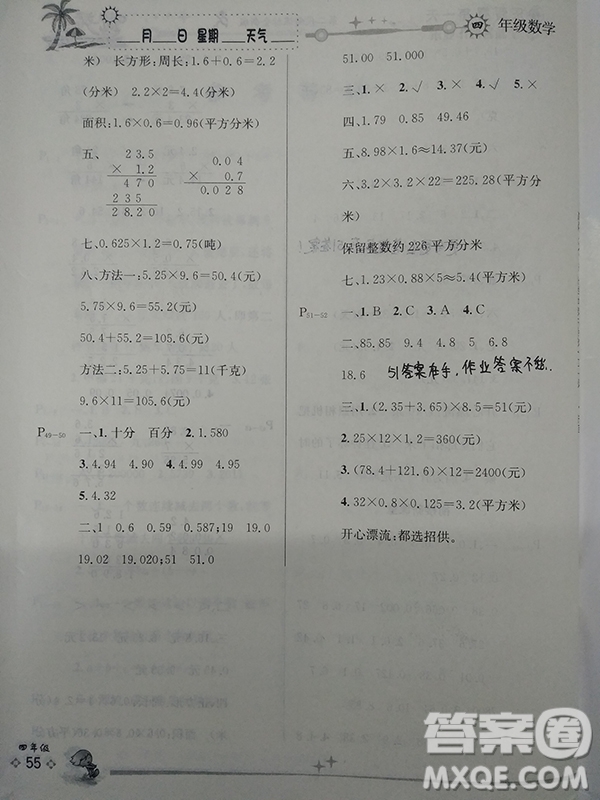 月 日 星期 天气
四 年级数学
米) 长方形:周长:1.6+0.6=2.2
(分米) 2.2×2=4.4(分米)
面积:1.6×0.6=0.96(平方分米)
五、
2 3.5
× 1.2
4 7 0
2 3 5
2 8.2 0
0.0 4
× 0.7
0.0 2 8
七、0.625×1.2=0.75(吨)
八、方法一:5.25×9.6=50.4(元)
5.75×9.6=55.2(元)
50.4+55.2=105.6(元)
方法二:5.25+5.75=11(千克)
9.6×11=105.6(元)
P49-50 一、1.十分 百分 2.1.580
3.4.94 4.96 4.4.99 4.95
5.4.32
二、1 0.6 0.59 0.587;19 19.0
19.02 19.020;51 51.0
51.00 51.000
三、1.× 2.√ 3.√ 4.× 5.×
四、1.79 0.85 49.46
五、8.98×1.6≈14.37(元)
六、3.2×3.2×22=225.28(平方分
米)
保留整数约 226 平方分米
七、1.23×0.88×5≈5.4(平方米)
P51-52 一、1.B 2.C 3.A 4.C
二、85.85 9.4 4.8 5 6.8
18.6 51答案在手，作业答案不愁.
三、1.(2.35+3.65)×8.5=51(元)
2.25×12×1.2=360(元)
3.(78.4+121.6)×12=2400(元)
4.32×0.8×0.125=3.2(平方米)
开心漂流:都选招供。
四年级
55
答案圈
MXQE.COM